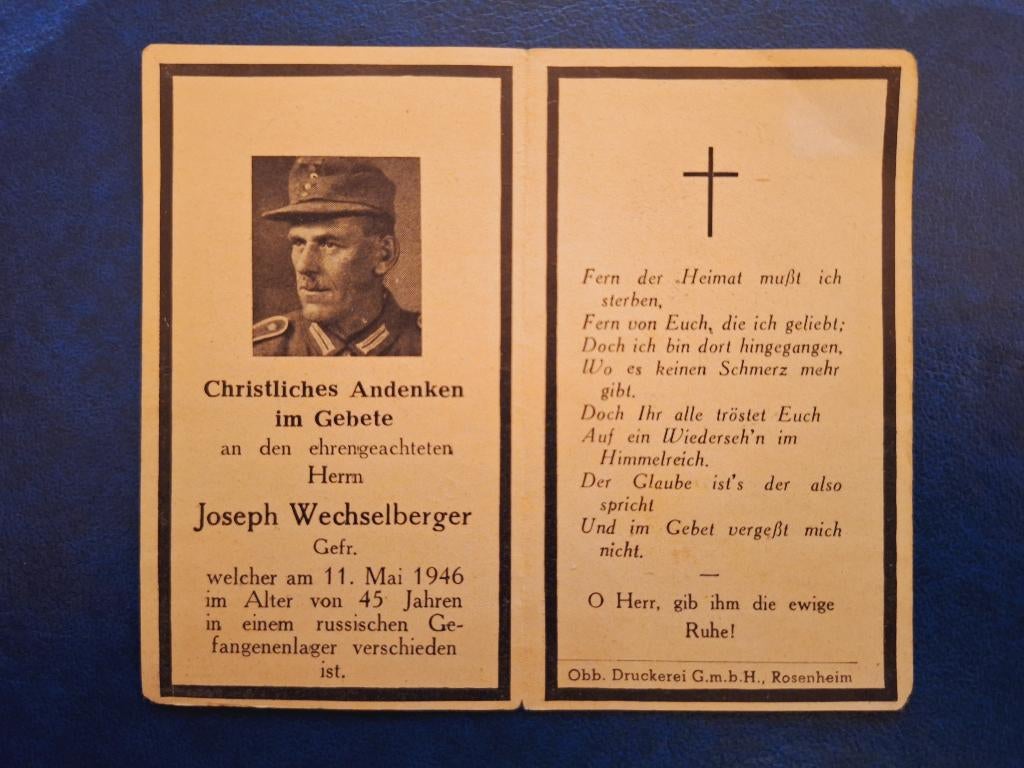 Christliches Andenken
im Gebete
an den ehrengeachteten
Herrn
Joseph Wechselberger
Gefr.
welcher am 11. Mai 1946
im Alter von 45 Jahren
in einem russischen Ge-
fangenenlager verschieden
ist.
Fern der Heimat mußt ich
sterben,
Fern von Euch, die ich geliebt;
Doch ich bin dort hingegangen,
Wo es keinen Schmerz mehr
gibt.
Doch Ihr alle tröstet Euch
Auf ein Wiederseh'n im
Himmelreich.
Der Glaube ist's der also
spricht
Und im Gebet vergeßt mich
nicht.
—
O Herr, gib ihm die ewige
Ruhe!
Obb. Druckerei G.m.b.H., Rosenheim